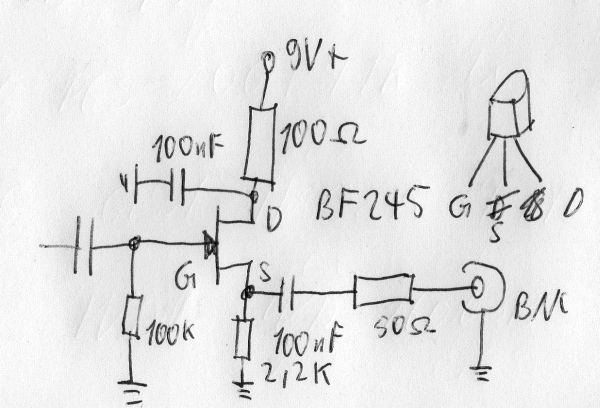 9V+
100Ω
100nF
BF245
G S D
D
G
S
100K
100nF
2,2K
50Ω
BNC